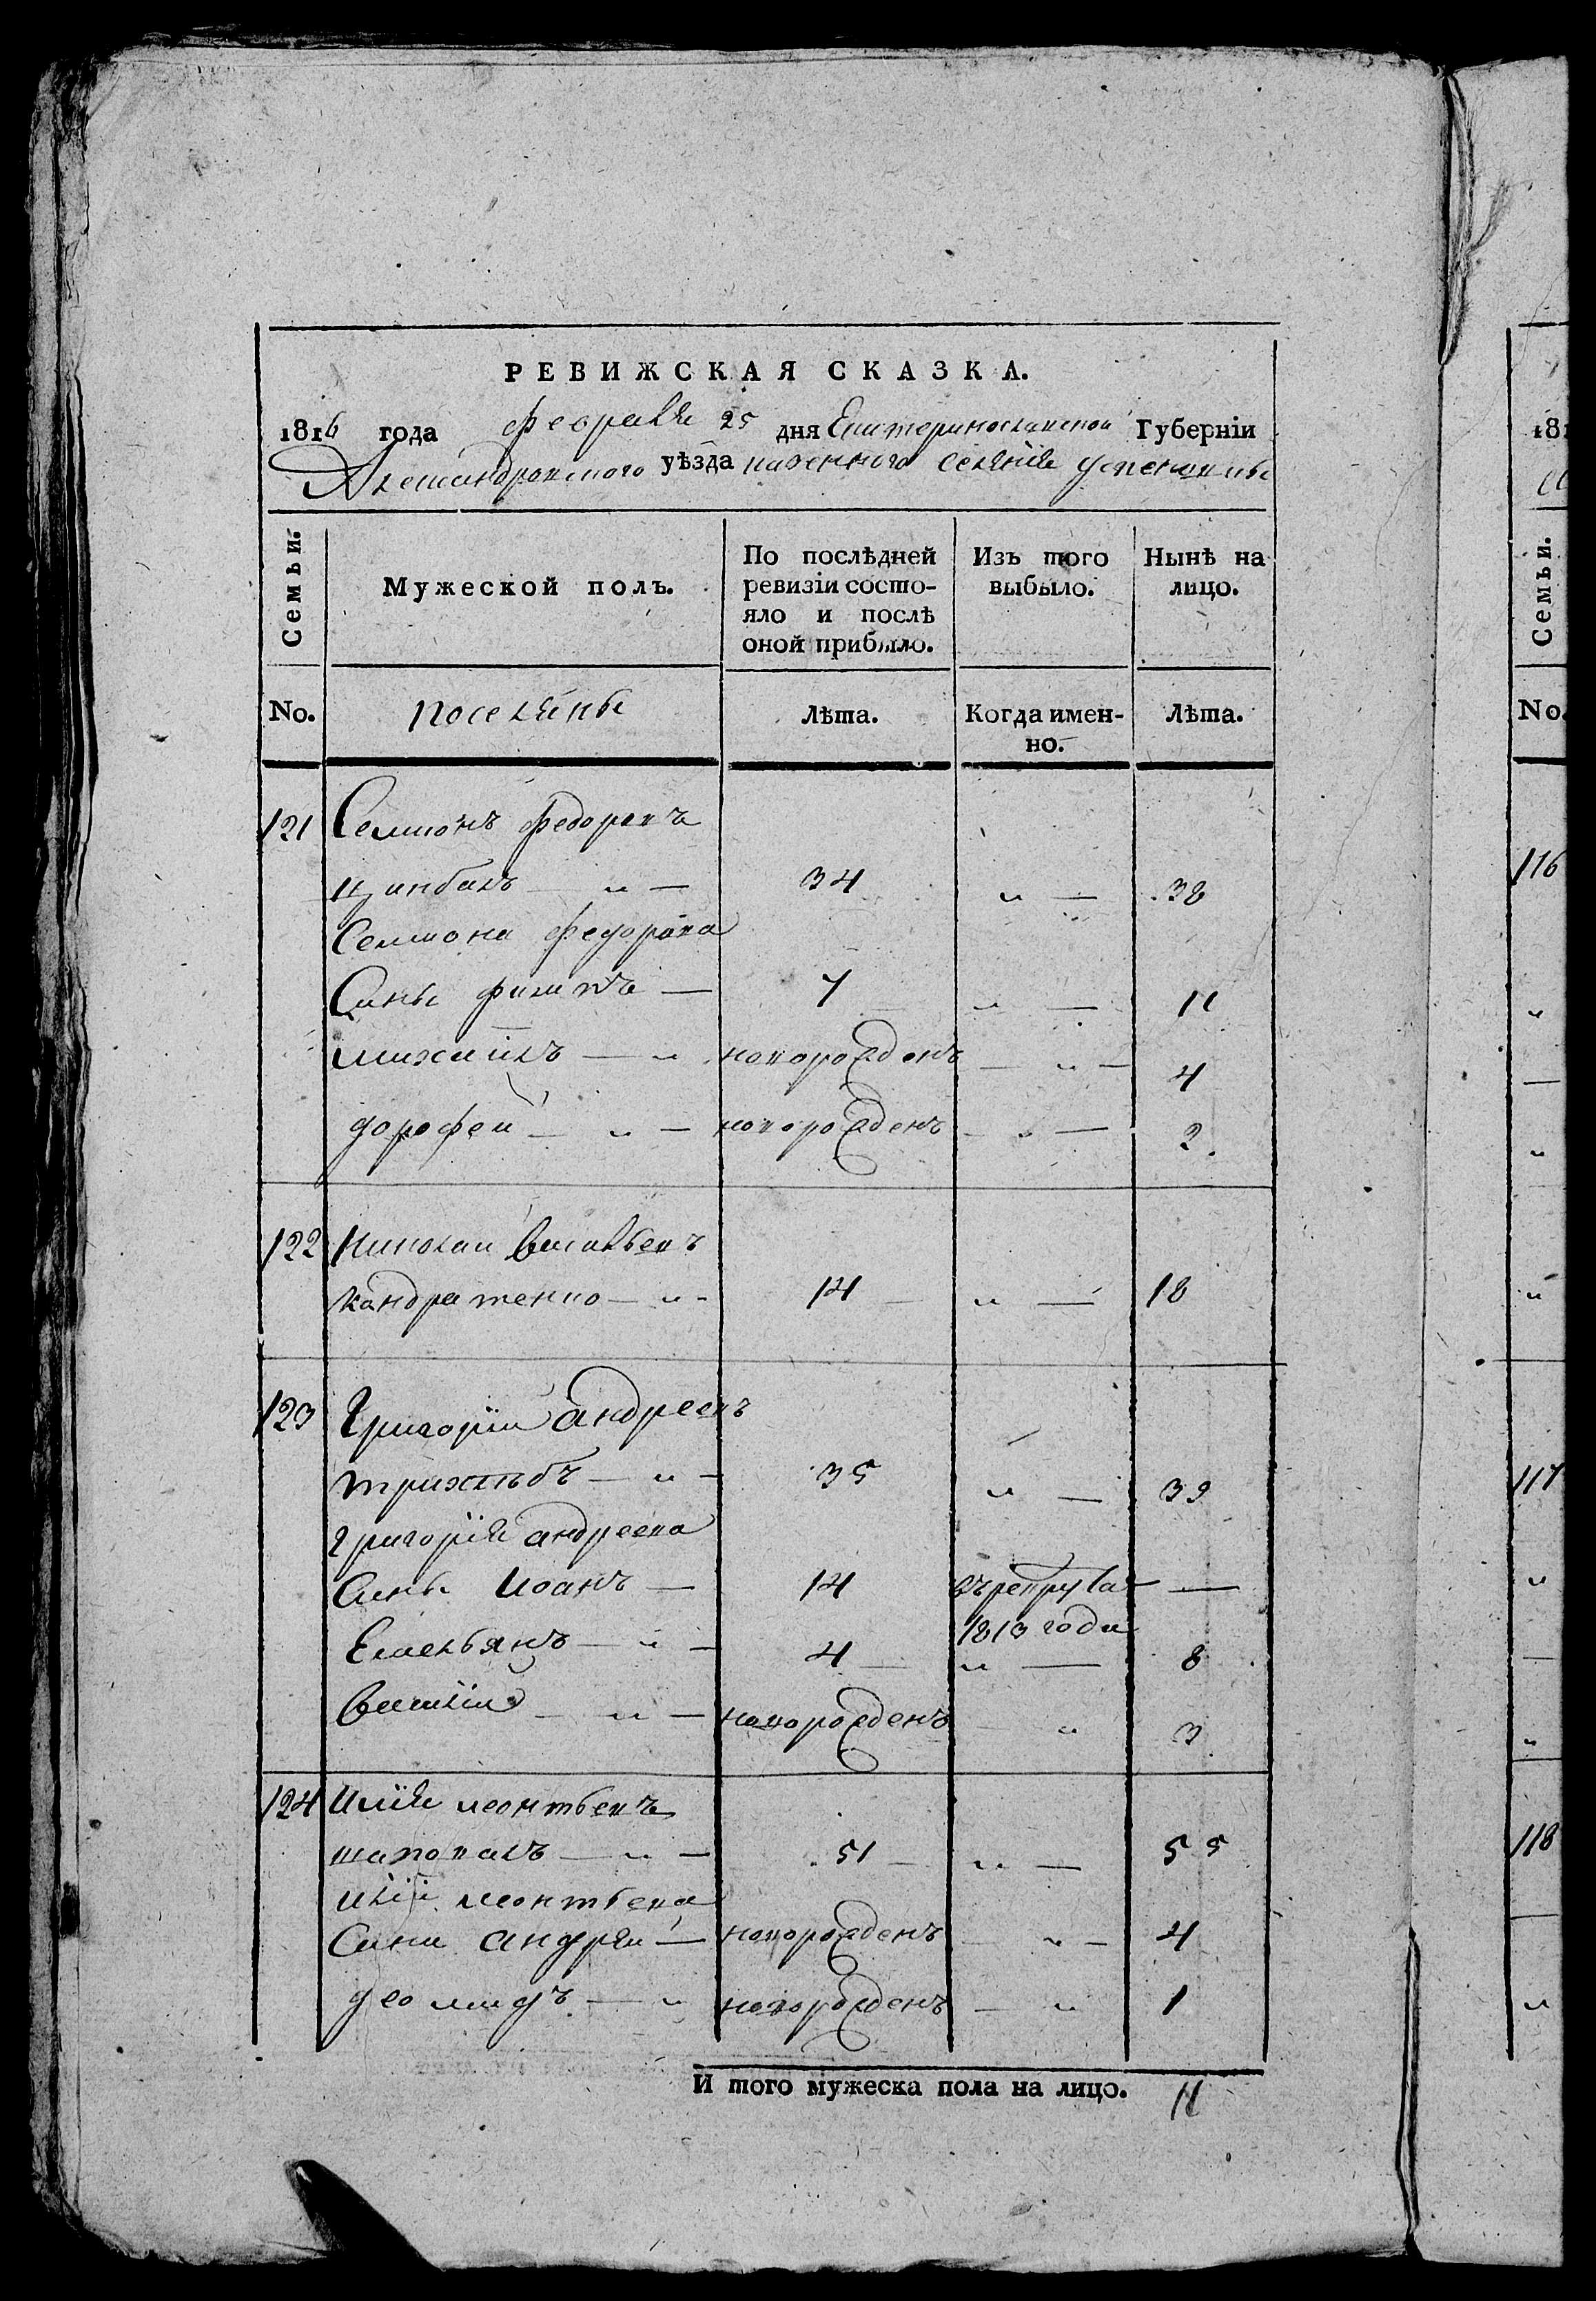 РЕВИЖСКАЯ СКАЗКА.
1816 года февраля 25 дня Екатеринославской Губерніи
Александровского уѣзда казенного селѣнія успеновкы
Семьи.
Мужеской полъ.
По послѣдней ревизіи состояло и послѣ оной прибыло.
Изъ того выбыло.
Нынѣ на лицо.
No. поселяны Лѣта. Когда именно. Лѣта.
121 Семионъ федоровъ
цимбалъ — „ — 34 „ — 38
Семиона федорова
Сины филипъ — 7 „ — 11
михаилъ — „ новорожденъ — „ — 4
дорофеи — „ — новорожденъ — „ — 2.
122 Николаи васильевъ
кандратенко — „ — 14 „ — 18
123 Григоріи андреевъ
трихлѣбъ — „ — 35 „ — 39
григорія андреева
Сины Иоанъ — 14 въ рекрута —
1813 года
Емельянъ — „ — 4 „ — 8
василіи — „ — новорожденъ — „ 3
124 Илія леонтьевъ
шаповалъ — „ — 51 „ — 55
иліи леонтьева
Сини андрѣи — новорожденъ — „ — 4
деомидъ — „ новорожденъ — „ 1
И того мужеска пола на лицо. 11
181
Семьи.
No.
116
117
118